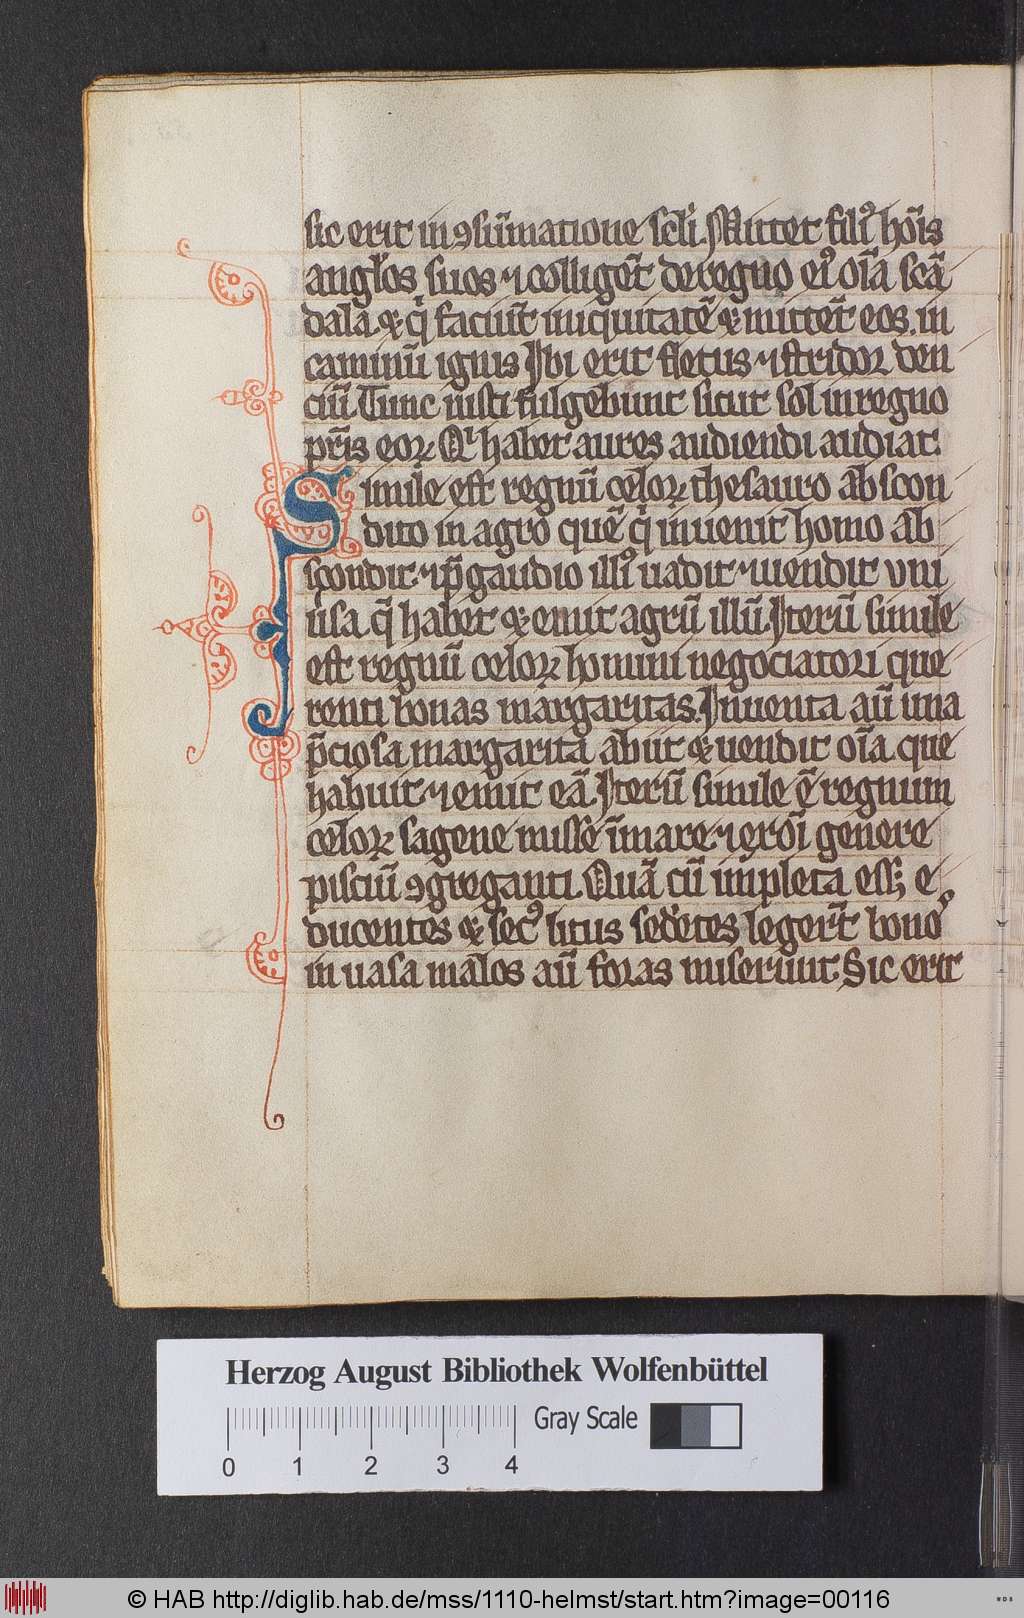 sic erit in ꝯsũmatione scl̃i. Mittet fili᷒ hoı̃s
angl̃os suos ⁊ colliget̃ de regno ei᷒ oı̃a scã
dala. ⁊ q̇ faciũt iniquitatẽ ⁊ mittet̃ eos. in
caminũ ignis Ibi erit fletus ⁊ stridor den
ciũ. Tunc iusti fulgebunt sicut sol in regno
pr̃is eoꝝ. Qi habet aures audiendi audiat.
Simile est regnũ celoꝝ thesauro abscon
dito in agro quẽ q̇ inuenit homo ab
scondit. ⁊ p̃ gaudio illi᷒ uadit ⁊ uendit vni
uisa q̃ habet ⁊ emit agrũ illũ. Iterũ simile
est regnũ celoꝝ homini negociatori que
renti bonas margaritas. Inuenta aũ una
p̃ciosa margarita abiit ⁊ uendit oı̃a que
habuit ⁊ emit eã. Iterũ simile ẽ regnum
celoꝝ sagene misse ı̃mare. ⁊ ex oı̃ genere
pisciũ ꝯgreganti. Quã cũ impleta ess; e
ducentes ⁊ sec᷒ litus sedẽtes legerr̃t bono᷒
in uasa malos aũ foras miserunt. Sic erit
Herzog August Bibliothek Wolfenbüttel
Gray Scale
0 1 2 3 4
© HAB http://diglib.hab.de/mss/1110-helmst/start.htm?image=00116